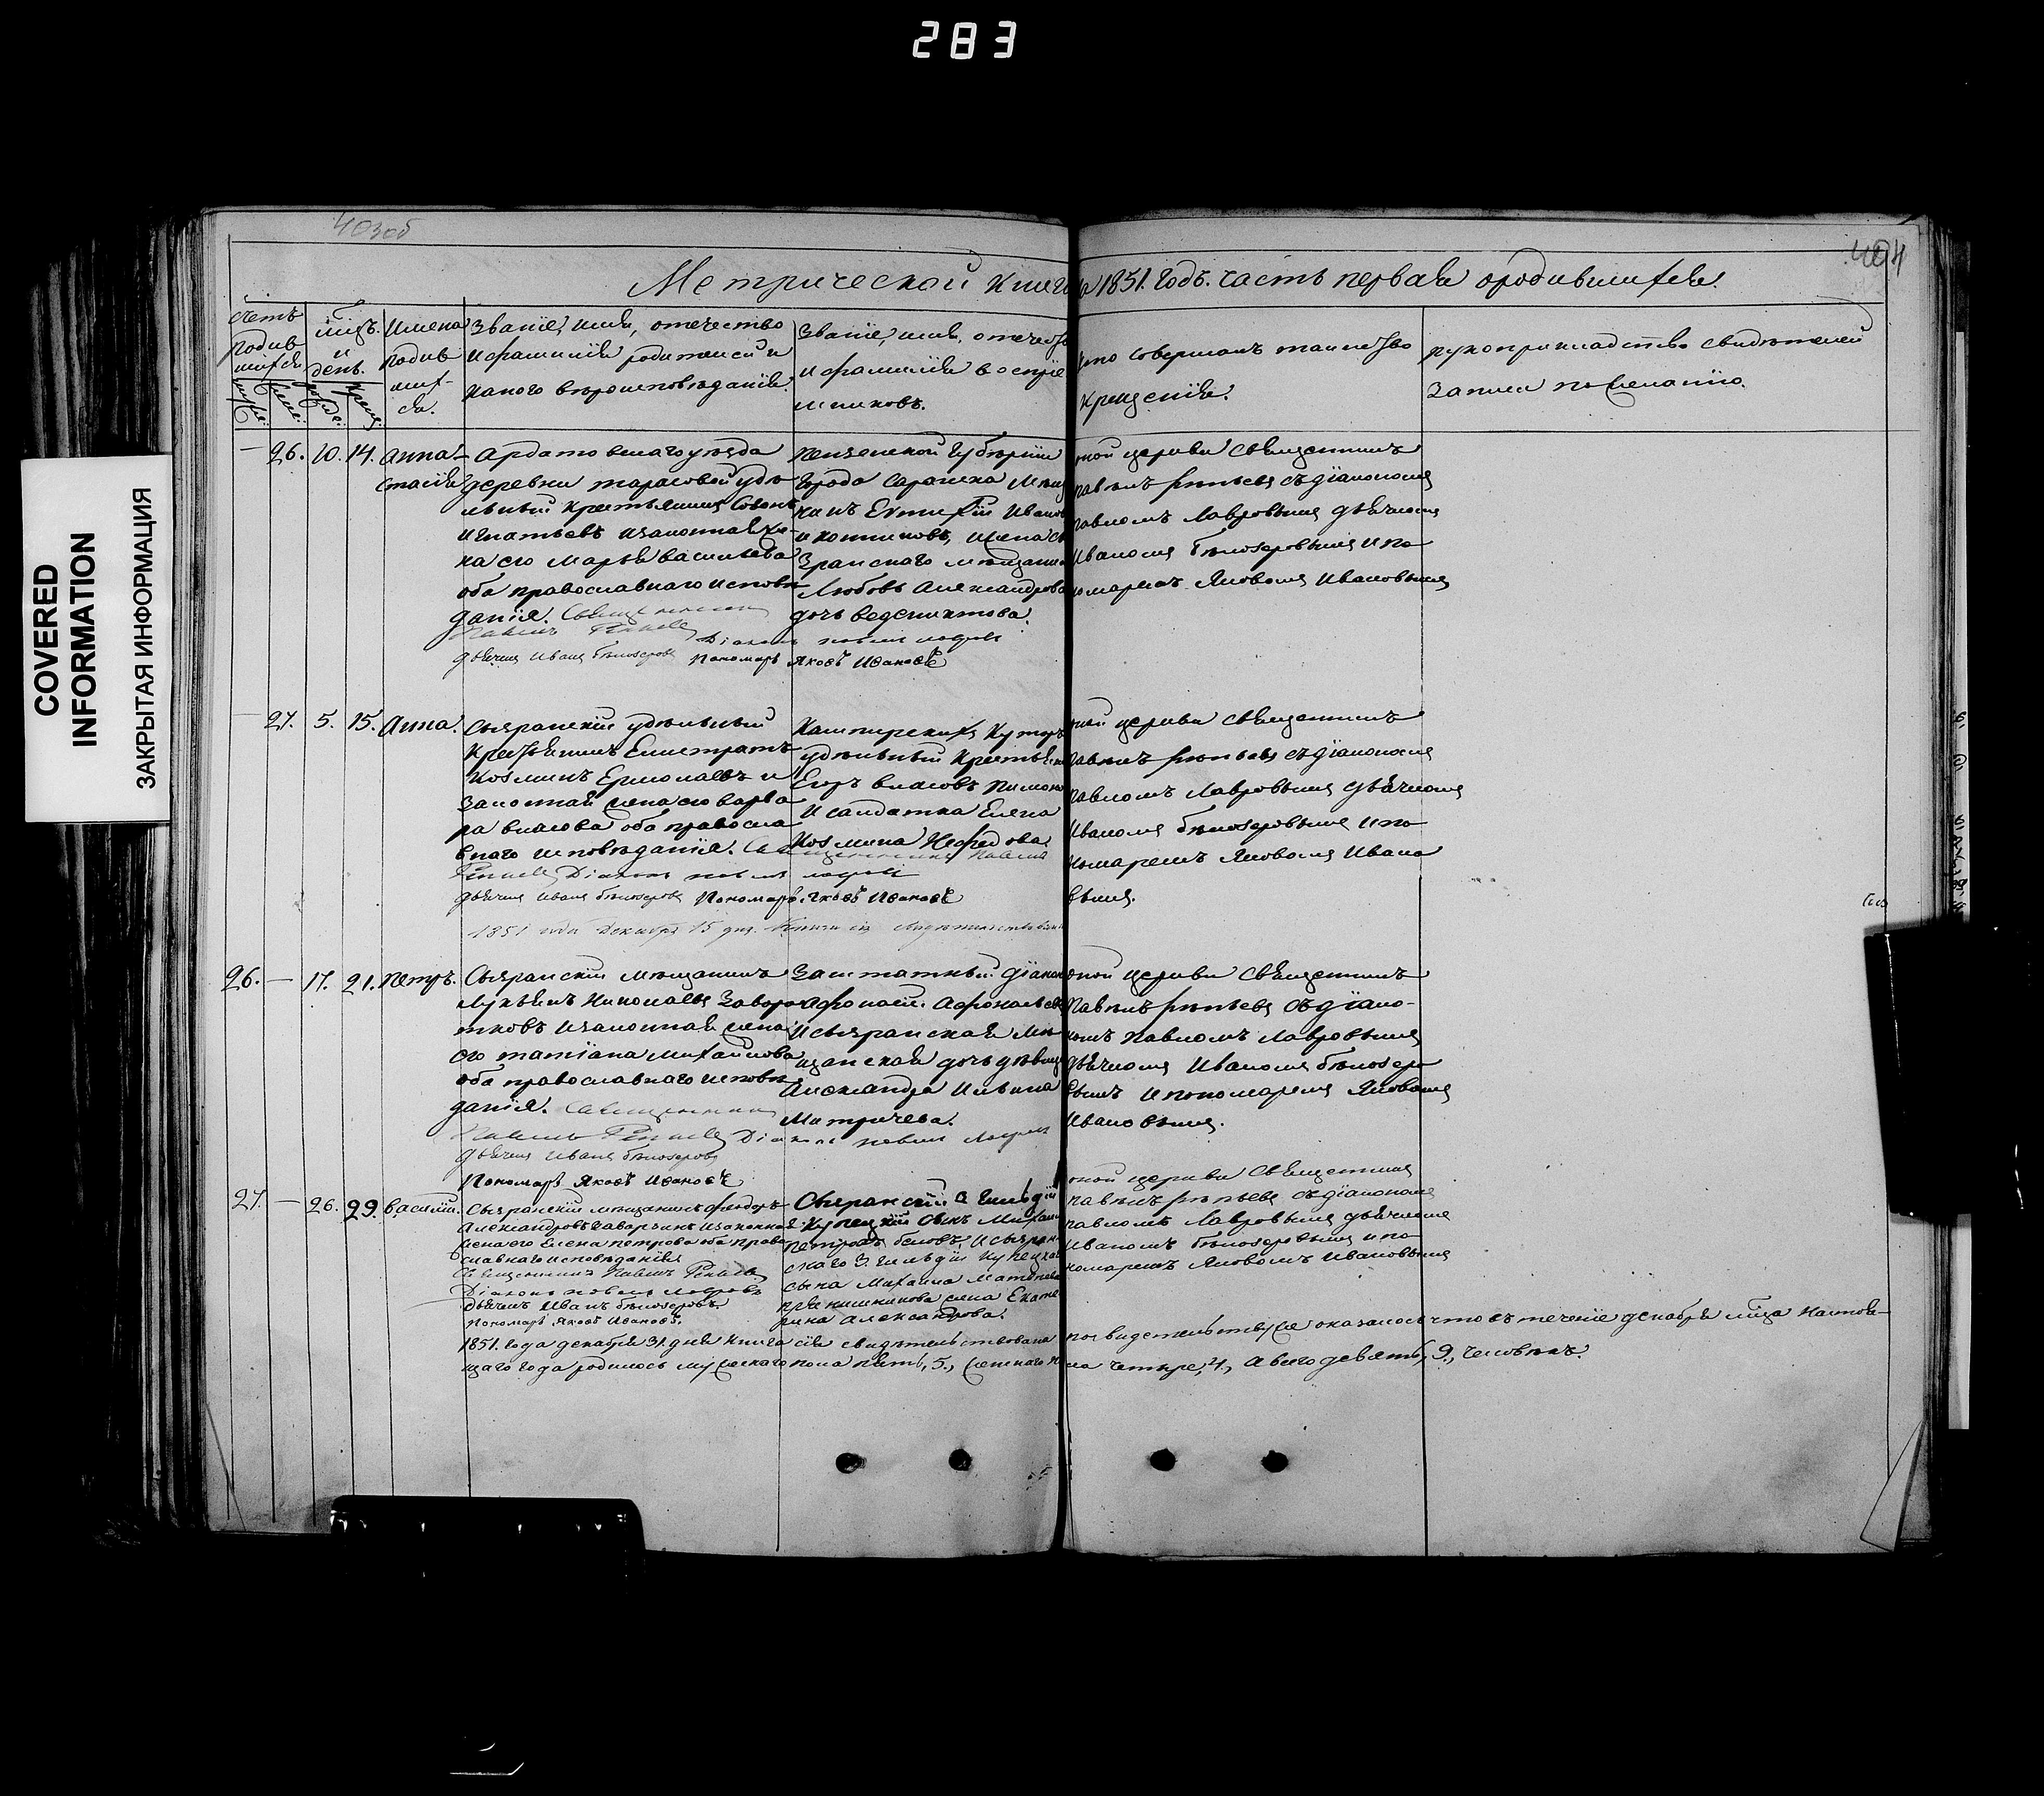 283
COVERED
INFORMATION
ЗАКРЫТАЯ ИНФОРМАЦИЯ
403об
404
Метрической книги на 1851. годъ. часть первая ородившихся.
счетъ
родив
шихся
мцъ.
и
день.
Имена
родив
ших-
ся.
Званіе, имя, отечество
и фамиліи родителей и
какого вѣроисповѣданія.
Званіе, имя, отечество
и фамилія воспріе
мниковъ.
кто совершалъ таинство
крещенія.
рукоприкладство свидѣтелей
записи по желанію.
— 26. 10. 14. Анна-
стасія
Ардатовскаго уѣзда
деревни тарасовой удѣ
льный крестьянинъ
игнатьевъ изаконная же-
на его Марья васильева
оба православнаго исповѣ
данія. Священникъ
Павелъ
Діаконъ павелъ лавровъ
дьячекъ Иванъ бѣлозеровъ Пономарь Яковъ Ивановъ
Пензенской Губерніи
города Саранска Мѣщ
Евтихій Иванов
Любовь Александрова
дочь
оной церкви Священникъ
павелъ съ діакономъ
павломъ Лавровымъ дьячкомъ
Иваномъ бѣлозеровымъ и по
номаремъ Яковомъ Ивановымъ
— 27. 5. 15. Анна.
Сызранскій удѣльный
Крестьянинъ Елистратъ
Козминъ Ермолаевъ и
законная жена его варва
ра власова оба правосла
внаго исповѣданія. Священникъ Павелъ
Діаконъ павелъ лавровъ
дьячекъ Иванъ бѣлозеровъ Пономарь Яковъ Ивановъ
Кашпирскихъ Хутор
удѣльный Крестьянин
Егоръ власовъ
и салдатка Елена
Козмина Нефедова
оной церкви священникъ
павелъ съ діакономъ
павломъ Лавровымъ дьячкомъ
Иваномъ бѣлозеровымъ и по
номаремъ Яковомъ Ивано
вымъ.
1851 года Декабря 15 дня. Книга сія свидѣтельствована
26. — 17. 21. Петръ.
Сызранскій мѣщанинъ
Лукьянъ Николаевъ Заворо
тковъ изаконная жена
его татіана михайлова
оба православнаго исповѣ
данія. Священникъ
Павелъ Діаконъ павелъ Лавровъ
дьячекъ Иванъ бѣлозеровъ
Пономарь Яковъ Ивановъ
Заштатный діакон
Афонасій Афонасьевъ
и сызранская Мѣ
щанская дочь дѣвица
Александра Ильина
оной церкви священникъ
Павелъ съ діако-
номъ Павломъ Лавровымъ
дьячкомъ Иваномъ бѣлозеро
вымъ и пономаремъ Яковомъ
Ивановымъ.
27. — 26. 29. василій.
Сызранскій мѣщанинъ федоръ
Александровъ изаконная
жена его Елена петрова оба право
славнаго исповѣданія
Священникъ Павелъ
Діаконъ павелъ Лавровъ
дьячекъ Иванъ бѣлозеровъ.
Пономарь Яковъ Ивановъ.
Сызранскій 3 Гильдіи
Купецкій сынъ Михаил
петровъ и сызран
скаго 3. гильдіи купецкаго
сына Михаила Матвѣева
жена Екате
рина Александрова.
оной церкви священникъ
павелъ съ діакономъ
павломъ Лавровымъ дьячкомъ
Иваномъ бѣлозеровымъ и по
номаремъ Яковомъ Ивановымъ
1851. года декабря 31. дня книга сія свидѣтельствована по свидетельствуся оказалось что въ теченіе декабря мца настоя-
щаго года родилось мужескаго пола пять, 5., женскаго пола четыре, 4., а всего девять, 9., человѣкъ.